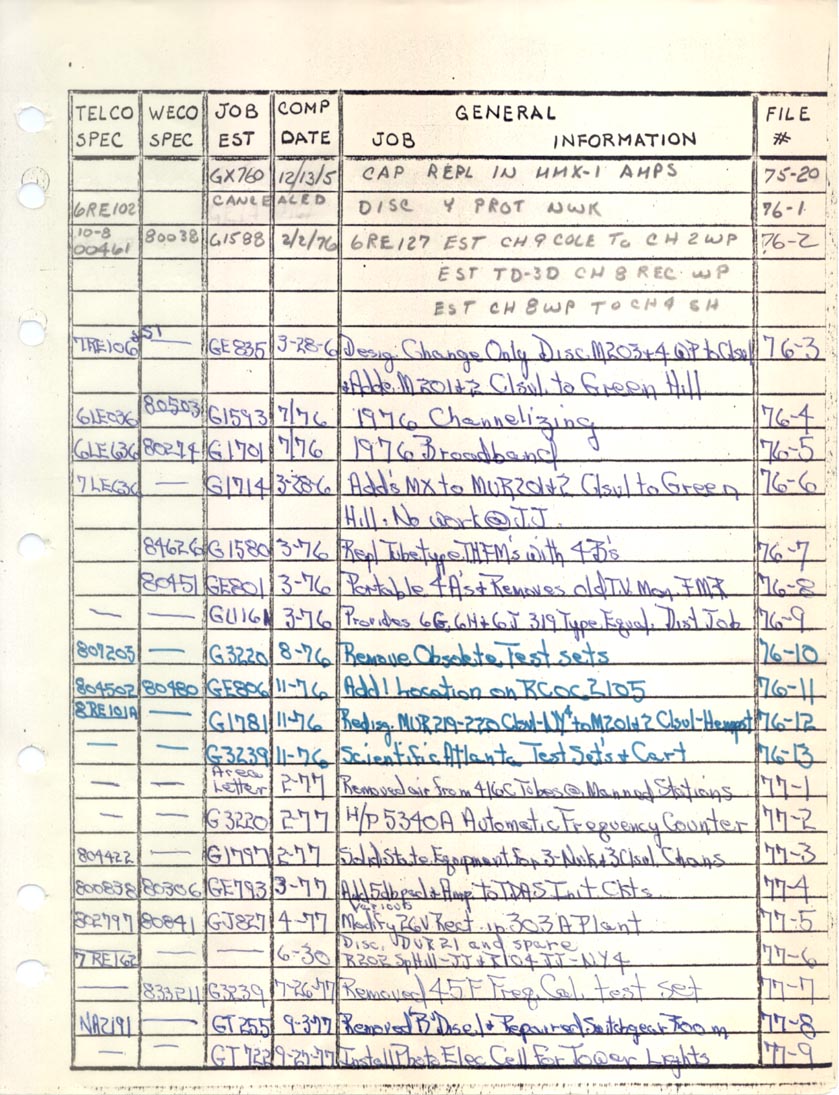 TELCO SPEC WECO SPEC JOB EST COMP DATE GENERAL JOB INFORMATION FILE #
GX760 12/13/5 CAP REPL IN MMX-1 AMPS 75-20
6RE102 CANCELALED DISC Y PROT NWK 76-1
10-8 00461 80038 G1588 2/2/76 6RE127 EST CH 9 COLE TO CH 2 WP 76-2
EST TD-3D CH 8 REC. WP
EST CH 8 WP TO CH 4 SH
7RE106 — GE835 3-28-6 Desig. Change Only Disc. M203+4 @P to Clsvl 76-3
+ Adds M201+2 Clsvl. to Green Hill
6LE036 80503 G1593 7/76 1976 Channelizing 76-4
6LE636 80274 G1701 7/76 1976 Broadband 76-5
7LE636 — G1714 3-28-6 Adds MX to MUR201+2 Clsvl to Green 76-6
Hill. No work @ J.J.
84626 G1580 3-76 Repl Tube type THFM's with 4B's 76-7
80451 GE801 3-76 Portable 4A's + Removes old T.V. Mon FMR 76-8
— — 3-76 Provides 6G, 6H + 6J 319 Type Equal. Dist Job 76-9
807205 — G3220 8-76 Remove Obsolete Test sets 76-10
804502 80480 GE806 11-76 Add 1 Location on RCOC 2105 76-11
8RE101A — G1781 11-76 Redisg. MUR219-220 Clsvl-NY4 to M201+2 Clsvl-Hempst 76-12
— — G3239 11-76 Scientific Atlanta Test Set's + Cart 76-13
— — Area Letter 2-77 Removed air from 416C Tubes @ Manned Stations 77-1
— G3220 2-77 H/P 5340A Automatic Frequency Counter 77-2
804422 — G1797 2-77 Solid State Equpment for 3-Nwk + 3 Clsvl Chans 77-3
800838 80306 GE793 3-77 Add 5db pad + Amp to TDAS Init Ckts. 77-4
802797 80841 GJ827 4-77 Modify Various 26V Rect. in 303A Plant 77-5
7RE162 — — 6-30 Disc. JDVR21 and spare 77-6
R202 SpHill-JJ + R104 JJ-NY4
— 833211 G3239 7-26-77 Removed 45F Freq. Cal. test set 77-7
NA2191 — GT255 9-3-77 Removed "B" Disel + Repaured Switchgear Room 77-8
— — GT722 9-27-77 Install Photo Elec Cell For Tower Lights 77-9